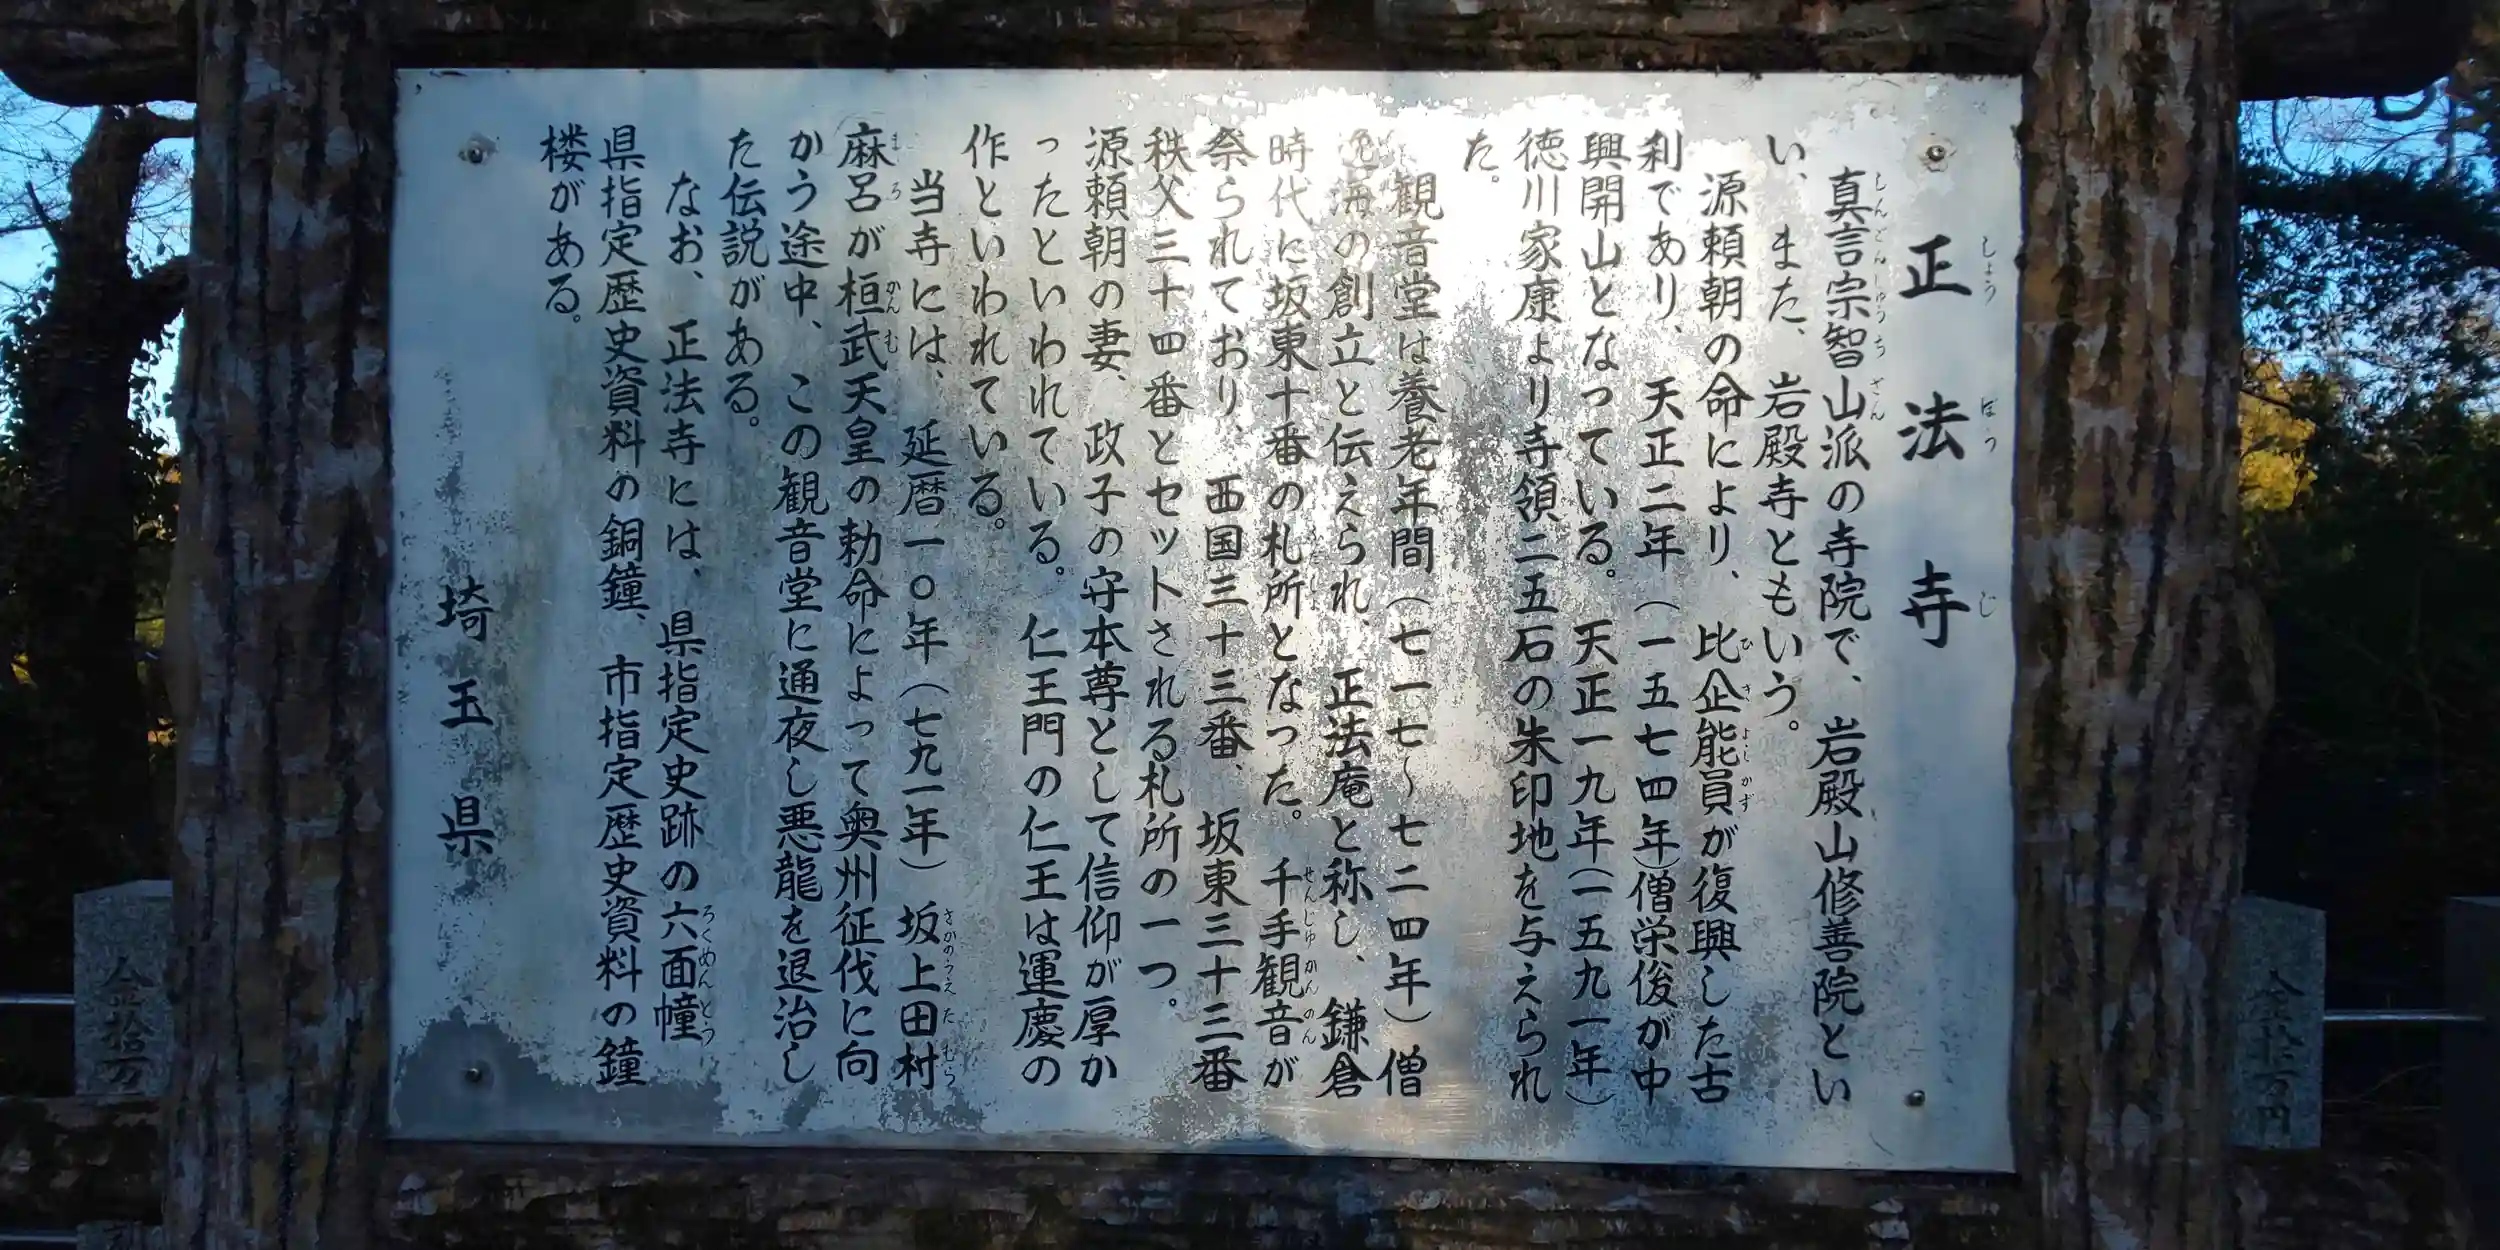 正法寺
真言宗智山派の寺院で、岩殿山修善院とい
い、また、岩殿寺ともいう。
源頼朝の命により、比企能員が復興した古
刹であり、天正二年（一五七四年）僧栄俊が中
興開山となっている。天正一九年（一五九一年）
徳川家康より寺領二五石の朱印地を与えられ
た。
観音堂は養老年間（七一七～七二四年）僧
逸海の創立と伝えられ、正法庵と称し、鎌倉
時代に坂東十番の札所となった。千手観音が
祭られており、西国三十三番、坂東三十三番
秩父三十四番とセットされる札所の一つ。
源頼朝の妻、政子の守本尊として信仰が厚か
ったといわれている。仁王門の仁王は運慶の
作といわれている。
当寺には、延暦一〇年（七九一年）坂上田村
麻呂が桓武天皇の勅命によって奥州征伐に向
かう途中、この観音堂に通夜し悪龍を退治し
た伝説がある。
なお、正法寺には、県指定史跡の六面幢
県指定歴史資料の銅鐘、市指定歴史資料の鐘
楼がある。
埼玉県
金拾万
金拾万円